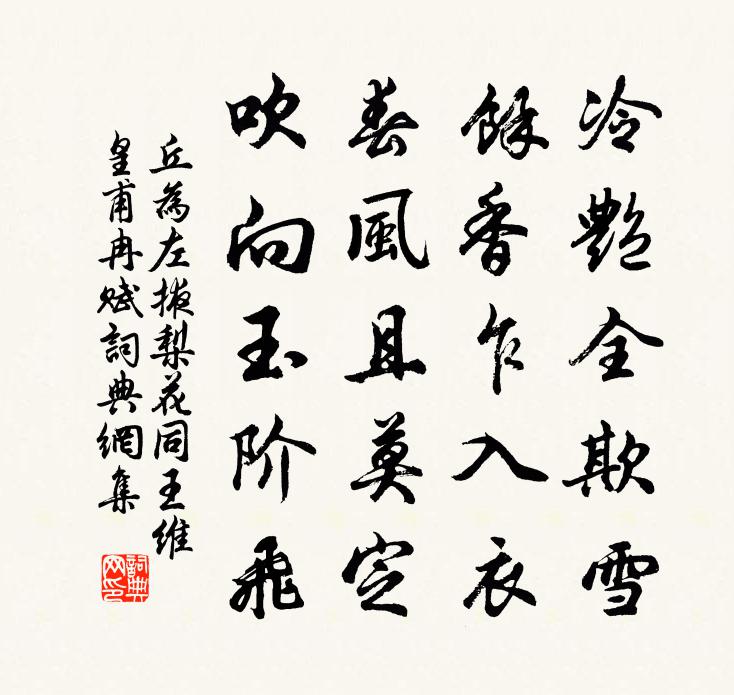 冷艷全欺雪
餘香乍入衣
春風且莫定
吹向玉阶飛
丘為左掖梨花同王維
皇甫冉賦詞典網集
詞典网印